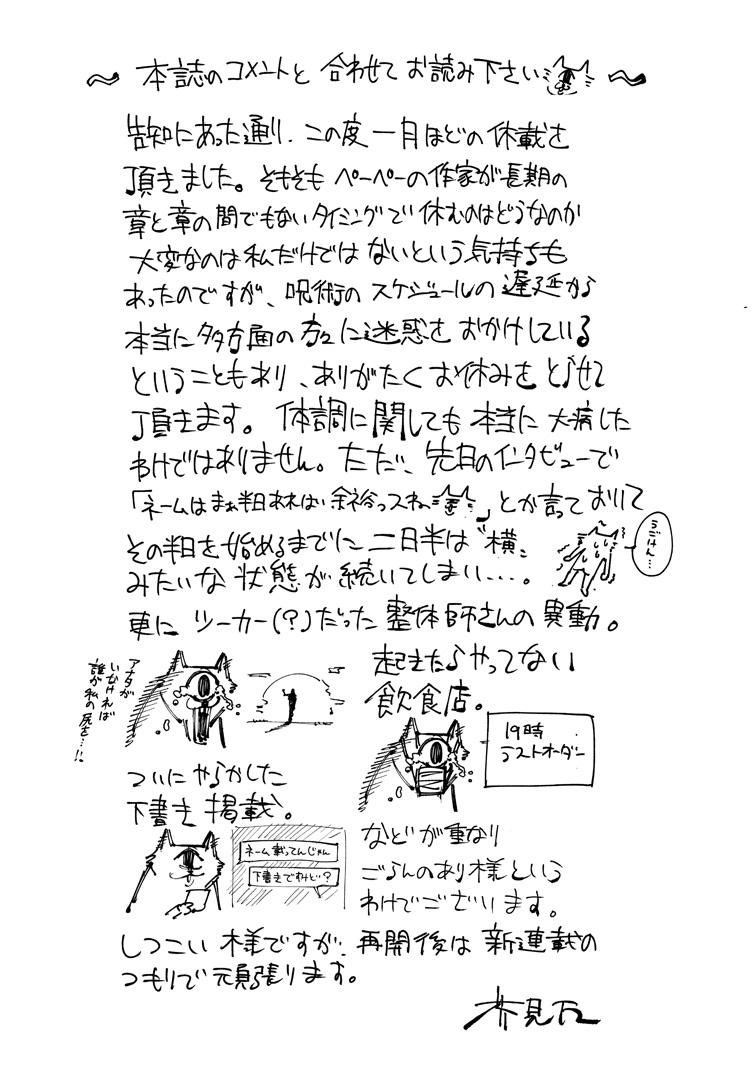 〜 本誌のコメントと 合わせて お読み下さい 〜
告知にあった通り、この度 一月ほどの休載を
頂きました。そもそも ペーペーの作家が長期の
章と章の間でもないタイミングで 休むのはどうなのか
大変なのは私だけでは ないという気持ちも
あったのですが、呪術の スケジュールの 遅延から
本当に多方面の方々に迷惑を おかけしている
ということもあり、ありがたく お休みを とらせて
頂きます。 体調に関しても 本当に 大病した
わけではありません。ただ、先日のインタビューで
「ネームはまぁ半日あれば 余裕っスね」とか言って おいて
その半日を始めるまでに 二日半は〝横〟
うごけん…
みたいな 状態が 続いてしまい…。
更に ツーカー(?)だった 整体師さんの 異動。
アナタが
いなければ
誰が私の尻を…!!
起きたらやってない
飲食店。
19時
ラストオーダー
ついに やらかした
下書き 掲載。
ネーム載ってんじゃん
下書きですけど?
などが重なり
ごらんのあり様という
わけでございます。
しつこい 様ですが、再開後は 新連載の
つもりで 頑張ります。
芥見下々